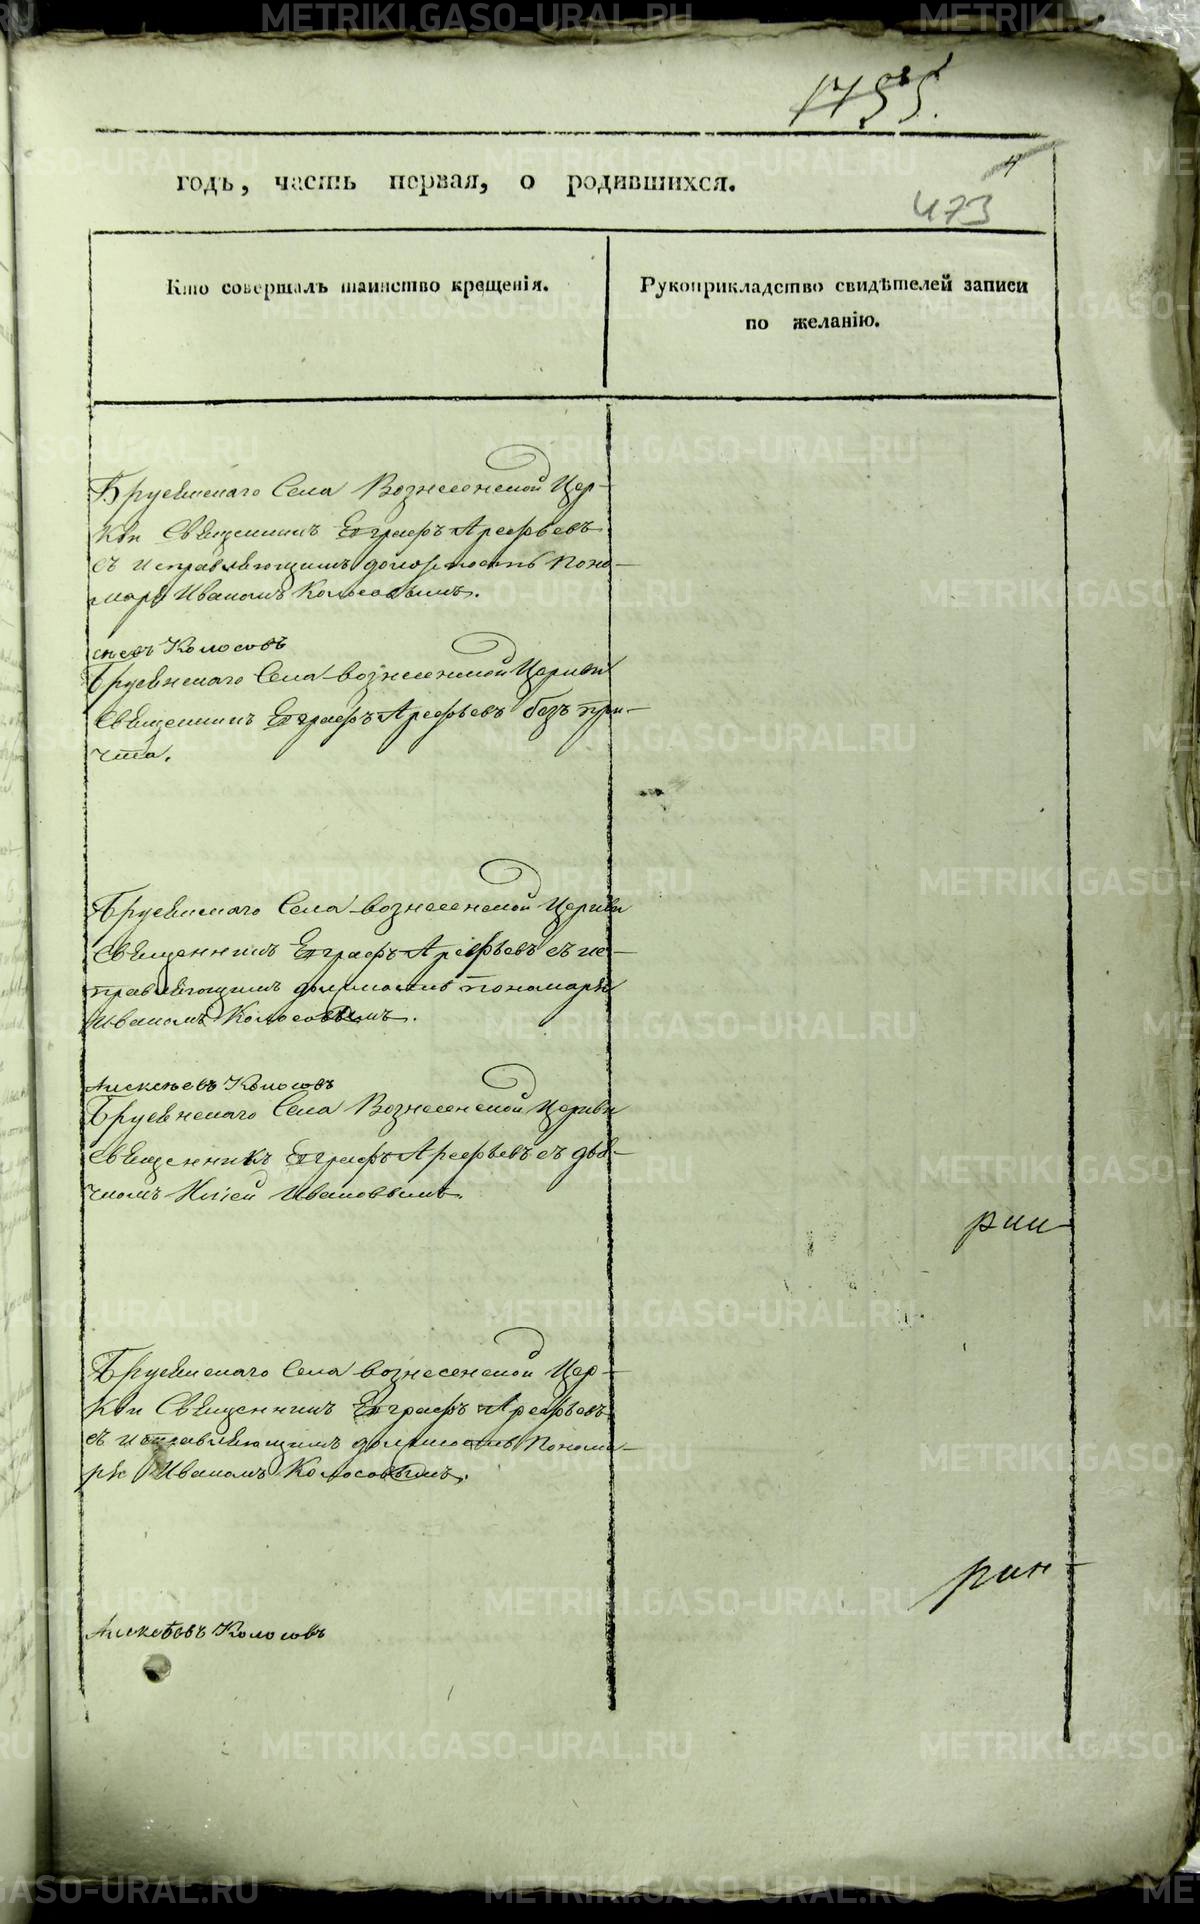 1755.
4
473
годъ, часть первая, о родившихся.
Кто совершалъ таинство крещенія.
Рукоприкладство свидѣтелей записи
по желанію.
Бруснянаго Села Вознесенской Цер-
кви Священникъ Евграфъ Арефьевъ
съ исправляющимъ должность Поно-
маря Иваномъ Колосовымъ.
Колосовъ
Села вознесенской Церкви
Священникъ Евграфъ Арефьевъ безъ при-
чта.
Села вознесенской Церкви
Священникъ Евграфъ Арефьевъ съ ис-
правляющимъ должность пономаря
Иваномъ Колосовымъ.
Алексѣевъ Колосовъ
Села Вознесенской Церкви
Священникъ Евграфъ Арефьевъ съ дья-
Ивановымъ.
рии
Села вознесенской Цер-
кви Священникъ Евграфъ Арефьевъ
съ исправляющимъ должность Понома-
ря Иваномъ Колосовымъ.
рии
Алексѣевъ Колосовъ
METRIKI.GASO-URAL.RU